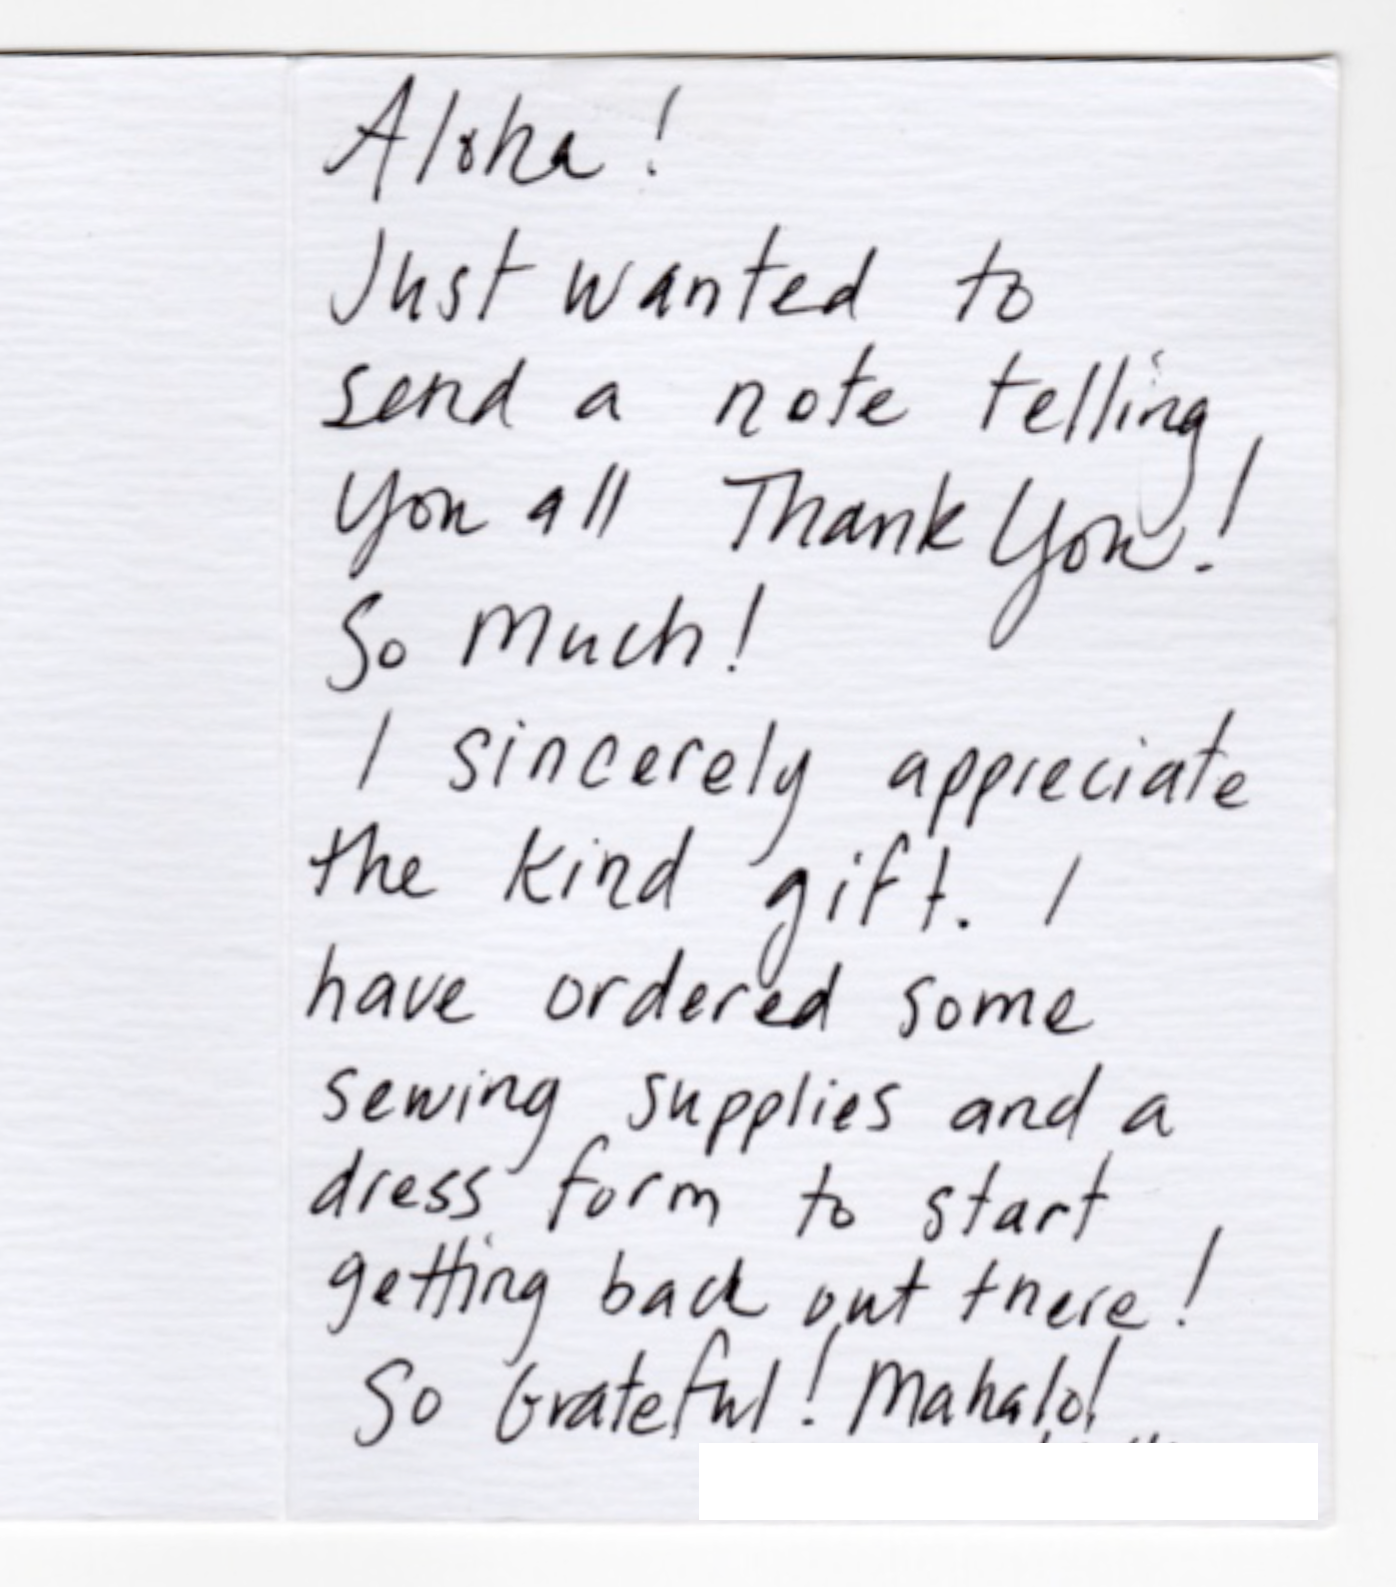 Aloha!
Just wanted to
send a note telling
you all Thank You!
So Much!
I sincerely appreciate
the kind gift. I
have ordered some
sewing supplies and a
dress form to start
getting back out there!
So Grateful! Mahalo!